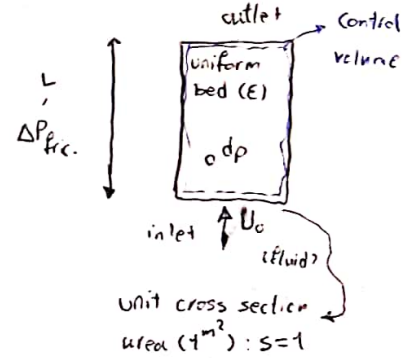 outlet
Control
volume
uniform
bed (ε)
L
,
ΔP fric.
dp
inlet
U₀
(fluid)
unit cross section
area (1 m²) : S=1